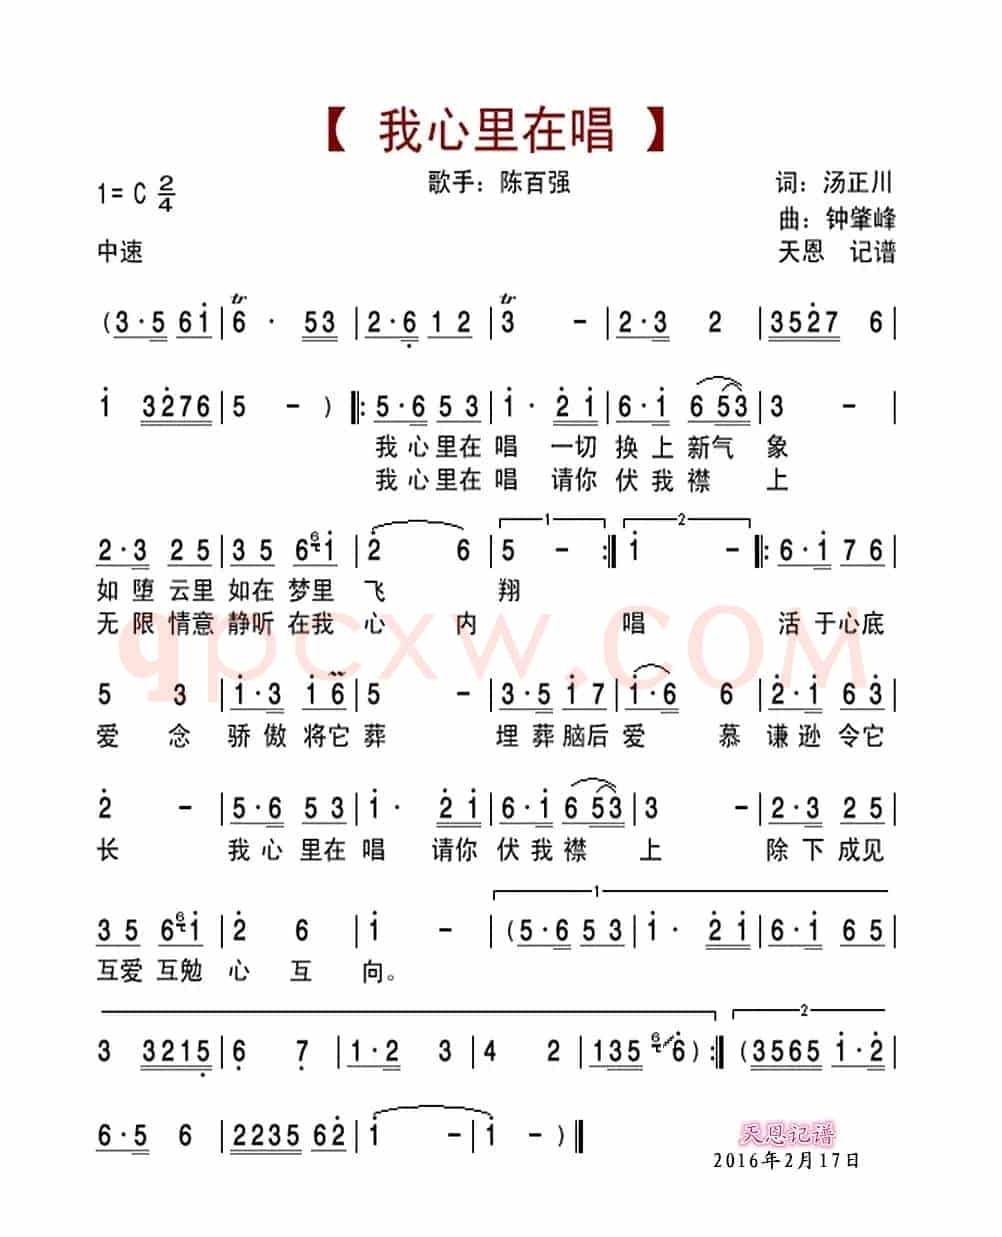 【 我心里在唱 】
1= C 2/4
歌手：陈百强
词：汤正川
曲：钟肇峰
中速
天恩 记谱
(3·5 6i | 6 · 53 | 2·6 12 | 3 - | 2·3 2 | 3527 6 |
i 3276 | 5 - ) ‖: 5·6 53 | i· 2i | 6·i 653 | 3 - |
我心里在唱 一切换上新气象
我心里在唱 请你伏我襟上
2·3 25 | 35 6i | 2 6 | 5 - :‖ i - ‖: 6·i 76 |
如堕云里如在梦里飞 翔
无限情意静听在我心 内 唱 活于心底
5 3 | i·3 i6 | 5 - | 3·5 i7 | i·6 6 | 2·i 63 |
爱念骄傲将它葬 埋葬脑后爱慕谦逊令它
2 - | 5·6 53 | i· 2i | 6·i 653 | 3 - | 2·3 25 |
长 我心里在唱 请你伏我襟上 除下成见
35 6i | 2 6 | i - | (5·6 53 | i· 2i | 6·i 65 |
互爱互勉心互向。
3 3215 | 6 7 | 1·2 3 | 4 2 | 135 6) :‖ (3565 i·2 |
6·5 6 | 2235 62 | i - | i - ) ‖
天恩记谱
2016年2月17日
qpcxw.com